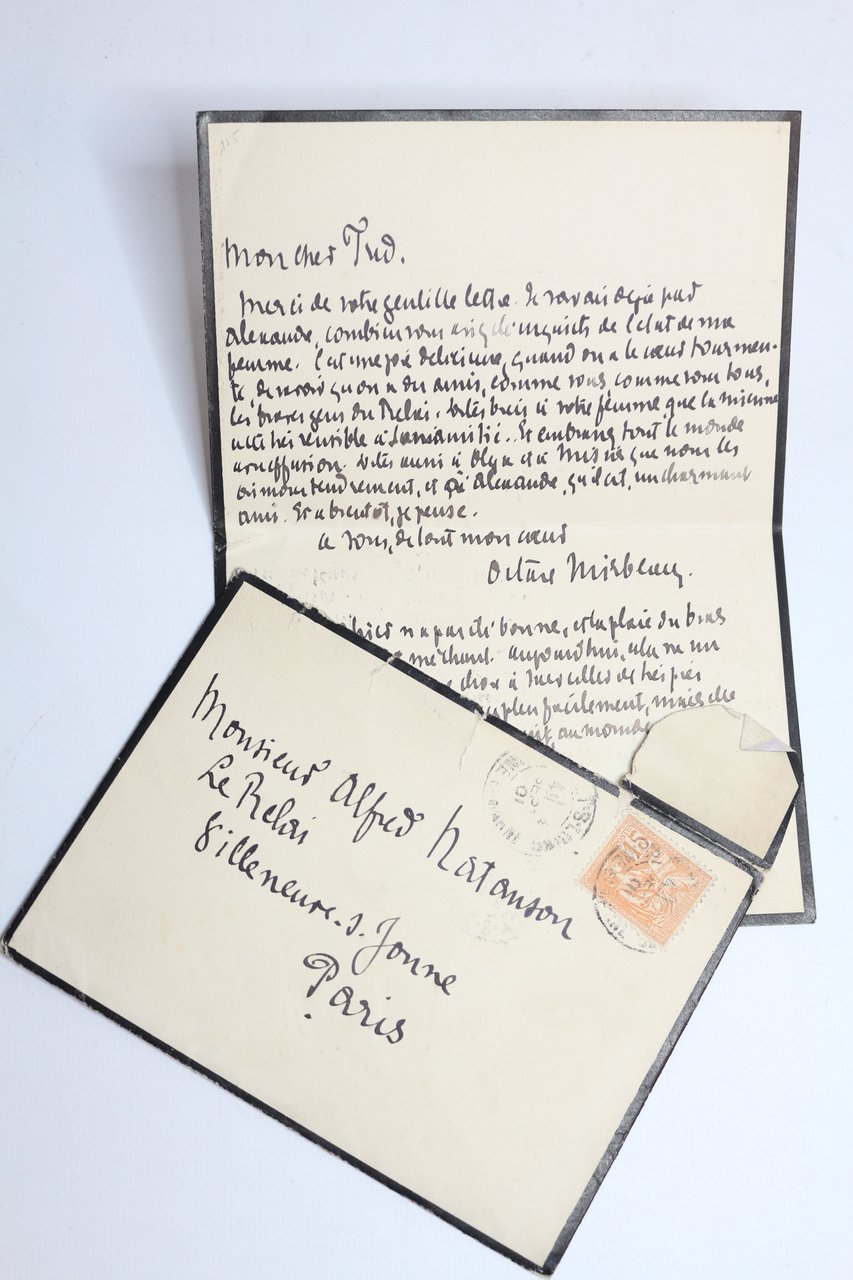 Mon cher Fred.
Merci de votre gentille lettre. Je savais déjà par
Alexandre, combien vous inquiets de l'état de ma
femme. C'est une joie délicieuse, quand on a le cœur tourmen-
té, de savoir qu'on a des amis, comme vous, comme vous tous,
les braves gens du Relai. Dites bien à votre femme que la mienne
a été très sensible à Et embrassez tout le monde
avec effusion. Dites aussi à Olga et à Misia que nous les
aimons tendrement, et à Alexandre, qu'il est, un charmant
ami. Et à bientôt, je pense.
à vous, de tout mon cœur
Octave Mirbeau.
n'a pas été bonne, et la plaie du bras
méchant. Aujourd'hui, cela va un
à merveilles de très près
plus facilement, mais elle
au monde
Monsieur Alfred Natanson
Le Relai
Villeneuve-s. Yonne
Paris